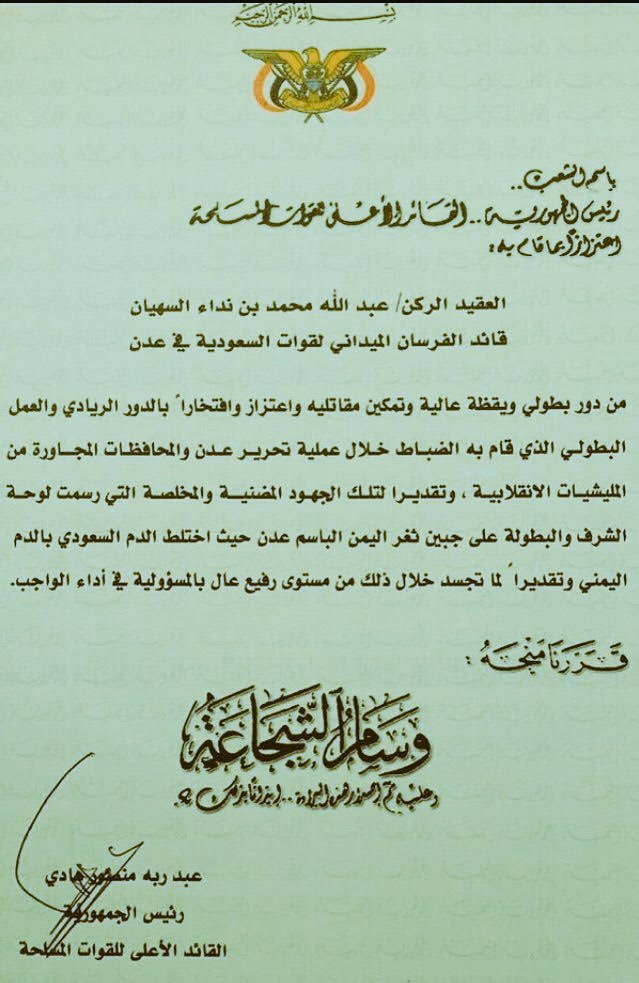 بسم الله الرحمن الرحيم
باسم الشعب ..
رئيس الجمهورية .. القائد الأعلى للقوات المسلحة
اعتزازاً بما قام به :
العقيد الركن/ عبد الله محمد بن نداء السهيان
قائد الفرسان الميداني لقوات السعودية في عدن
من دور بطولي ويقظة عالية وتمكين مقاتليه واعتزاز وافتخاراً بالدور الريادي والعمل
البطولي الذي قام به الضباط خلال عملية تحرير عدن والمحافظات المجاورة من
المليشيات الانقلابية ، وتقديرا لتلك الجهود المضنية والمخلصة التي رسمت لوحة
الشرف والبطولة على جبين ثغر اليمن الباسم عدن حيث اختلط الدم السعودي بالدم
اليمني وتقديراً لما تجسد خلال ذلك من مستوى رفيع عال بالمسؤولية في أداء الواجب.
قَرَّرْنَا مَنْحَهُ :
وِسَامُ الشَّجَاعَةِ
وعليه تم إصدار هذه البراءة .. إيذاناً بذلك
عبد ربه منصور هادي
رئيس الجمهورية
القائد الأعلى للقوات المسلحة